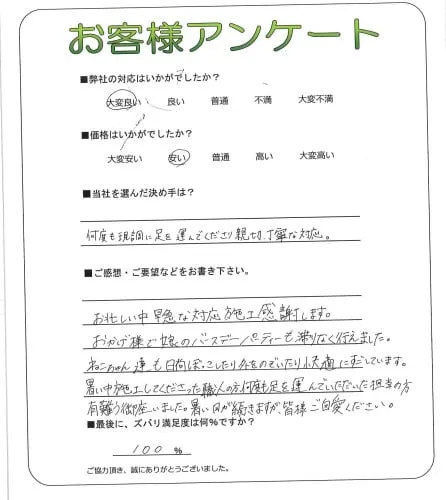 お客様アンケート
■弊社の対応はいかがでしたか？
大変良い 良い 普通 不満 大変不満
■価格はいかがでしたか？
大変安い 安い 普通 高い 大変高い
■当社を選んだ決め手は？
何度も現調に足を運んでくださり親切、丁寧な対応。
■ご感想・ご要望などをお書き下さい。
お忙しい中早急な対応施工感謝します。
おかげ様で娘のバースデーパーティーも滞りなく行えました。
ねこちゃん達も日向ぼっこしたり外をのぞいたり快適にすごしています。
暑い中施工してくださった職人の方何度も足を運んでいただいた担当の方
有難う御座いました。暑い日が続きますが、皆様ご自愛ください。
■最後に、ズバリ満足度は何%ですか？
100 %
ご協力頂き、誠にありがとうございました。